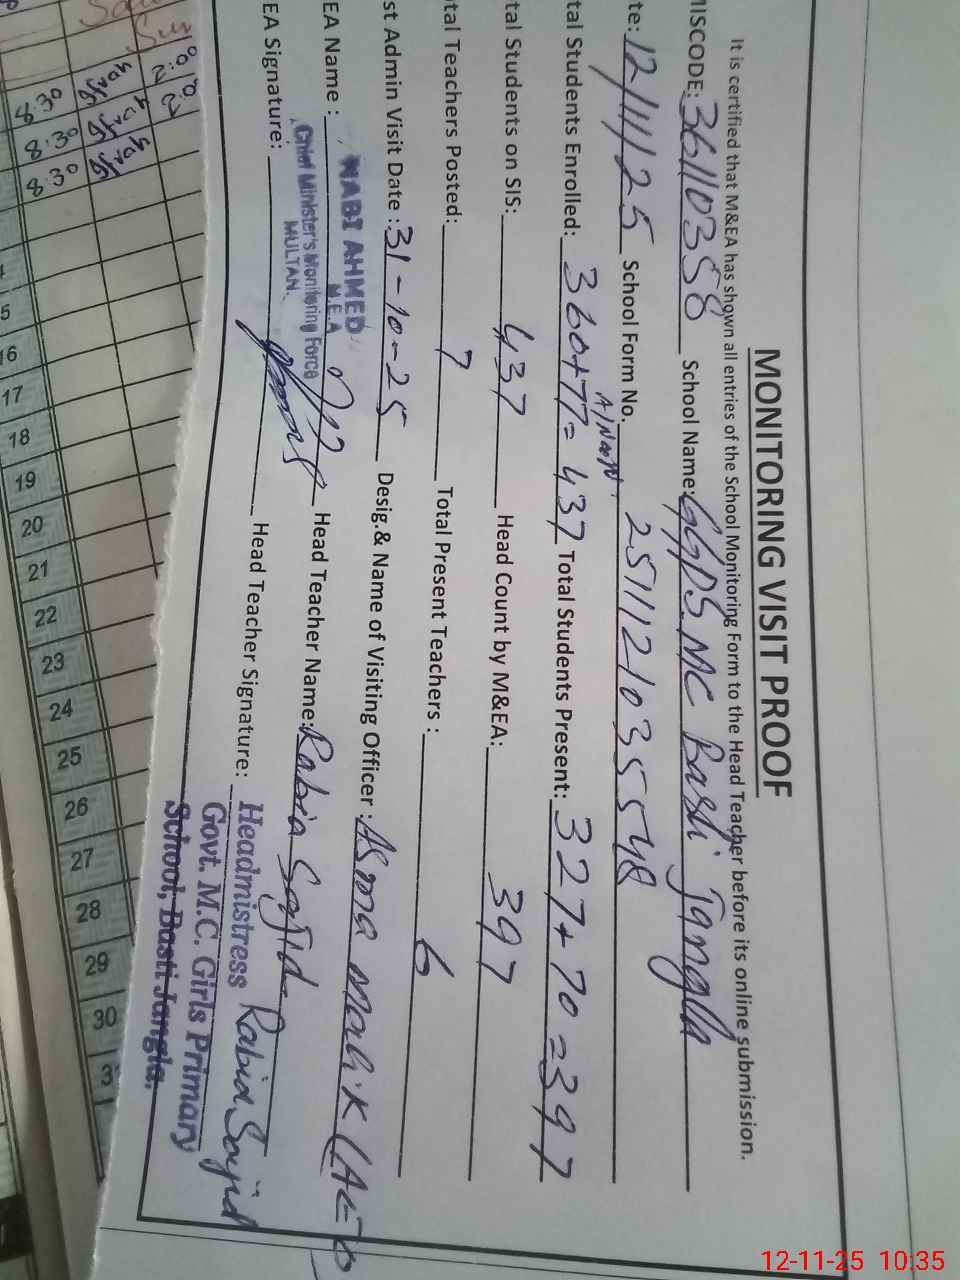 MONITORING VISIT PROOF
It is certified that M&EA has shown all entries of the School Monitoring Form to the Head Teacher before its online submission.
MISCODE: 36110358 School Name: GGPS MC Basti Jangla
te: 12/11/25 School Form No. 2511121035548
tal Students Enrolled: 360+77= 437 Total Students Present: 327+70=397
tal Students on SIS: 437 Head Count by M&EA: 397
tal Teachers Posted: 7 Total Present Teachers: 6
st Admin Visit Date: 31-10-25 Desig.& Name of Visiting Officer: Asma Malik
EA Name: NABI AHMED Head Teacher Name: Rabia Sajid
M.E.A
Chief Minister's Monitoring Force
MULTAN.
EA Signature: Head Teacher Signature: Rabia Sajid
Headmistress
Govt. M.C. Girls Primary
School, Basti Jangla.
8:30
8:30
8:30
5
16
17
18
19
20
21
22
23
24
25
26
27
28
29
30
3
12-11-25 10:35